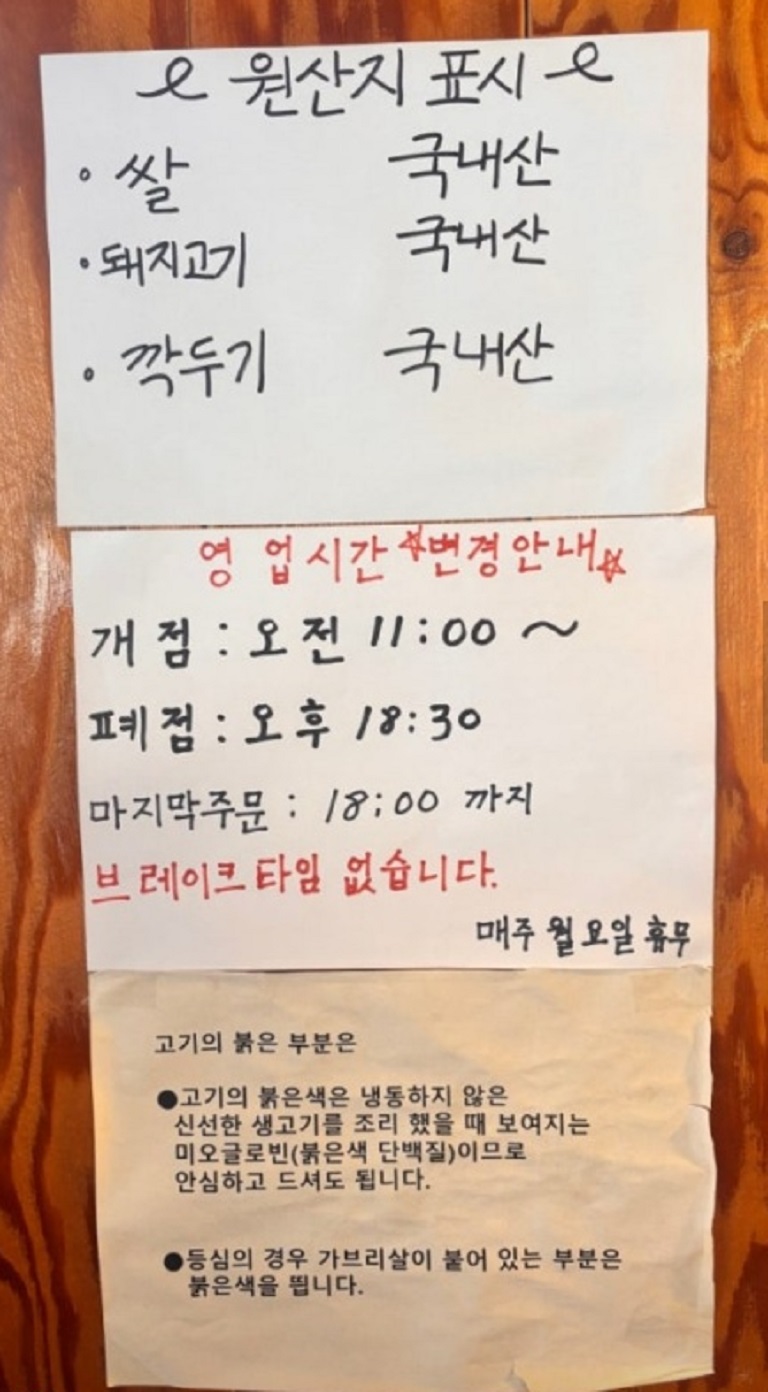 원산지 표시
• 쌀 국내산
• 돼지고기 국내산
• 깍두기 국내산
영업시간 ☆변경안내☆
개점 : 오전 11:00 ~
폐점 : 오후 18:30
마지막주문 : 18:00 까지
브레이크타임 없습니다.
매주 월요일 휴무
고기의 붉은 부분은
●고기의 붉은색은 냉동하지 않은
신선한 생고기를 조리 했을 때 보여지는
미오글로빈(붉은색 단백질)이므로
안심하고 드셔도 됩니다.
●등심의 경우 가브리살이 붙어 있는 부분은
붉은색을 띕니다.